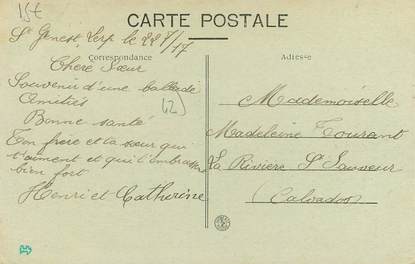 15€
CARTE POSTALE
St Genest Lerp le 22 7/17
Correspondance
Adresse
Chere Sœur
Souvenir d'une ballade
Amitiés
(42)
Bonne santé
Ton frere et ta sœur qui
t'aiment et qui t'embrasse
bien fort
Henri et Catherine
Mademoiselle
Madeleine Tourant
La Riviere St Sauveur
(Calvados)